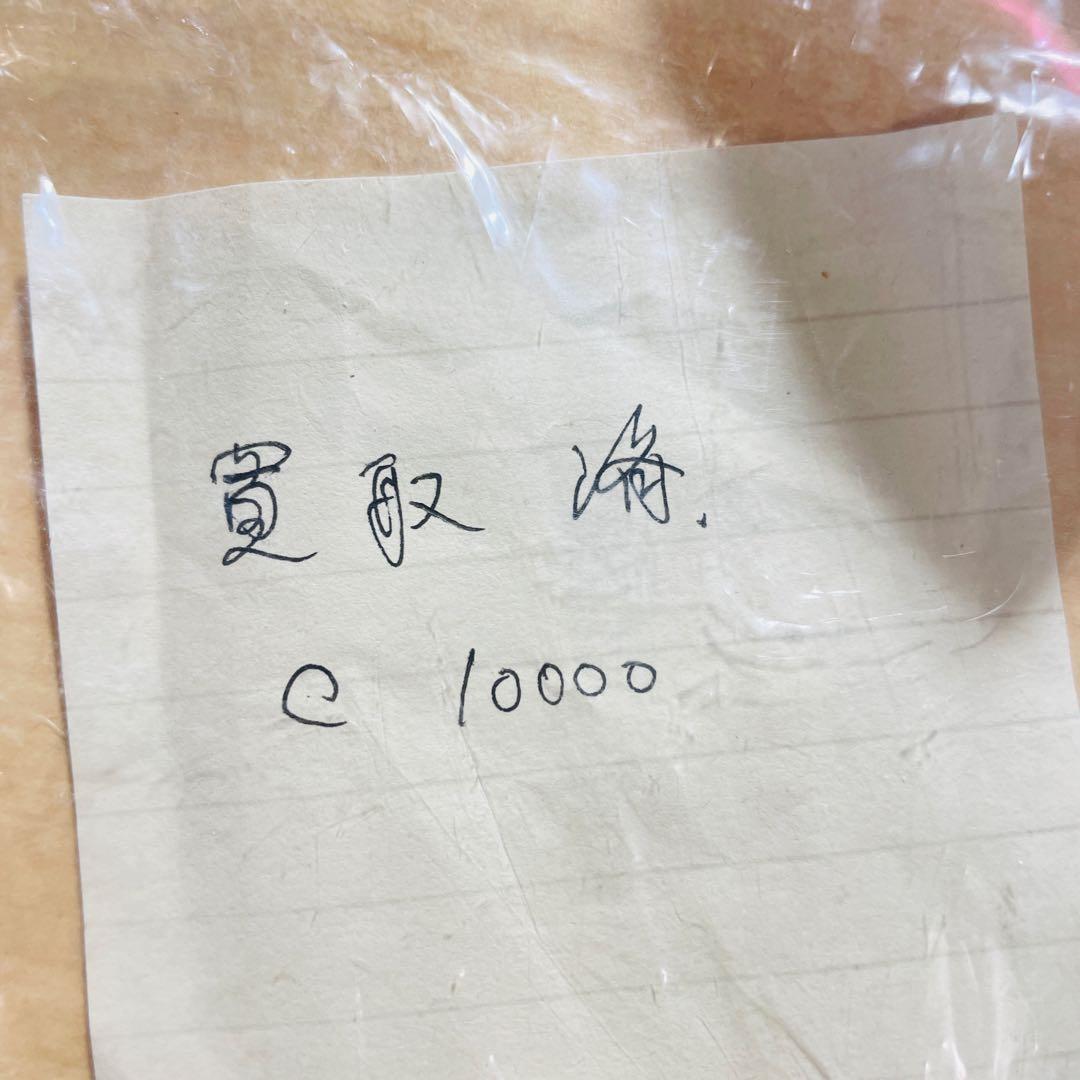 買取済.
C 10000